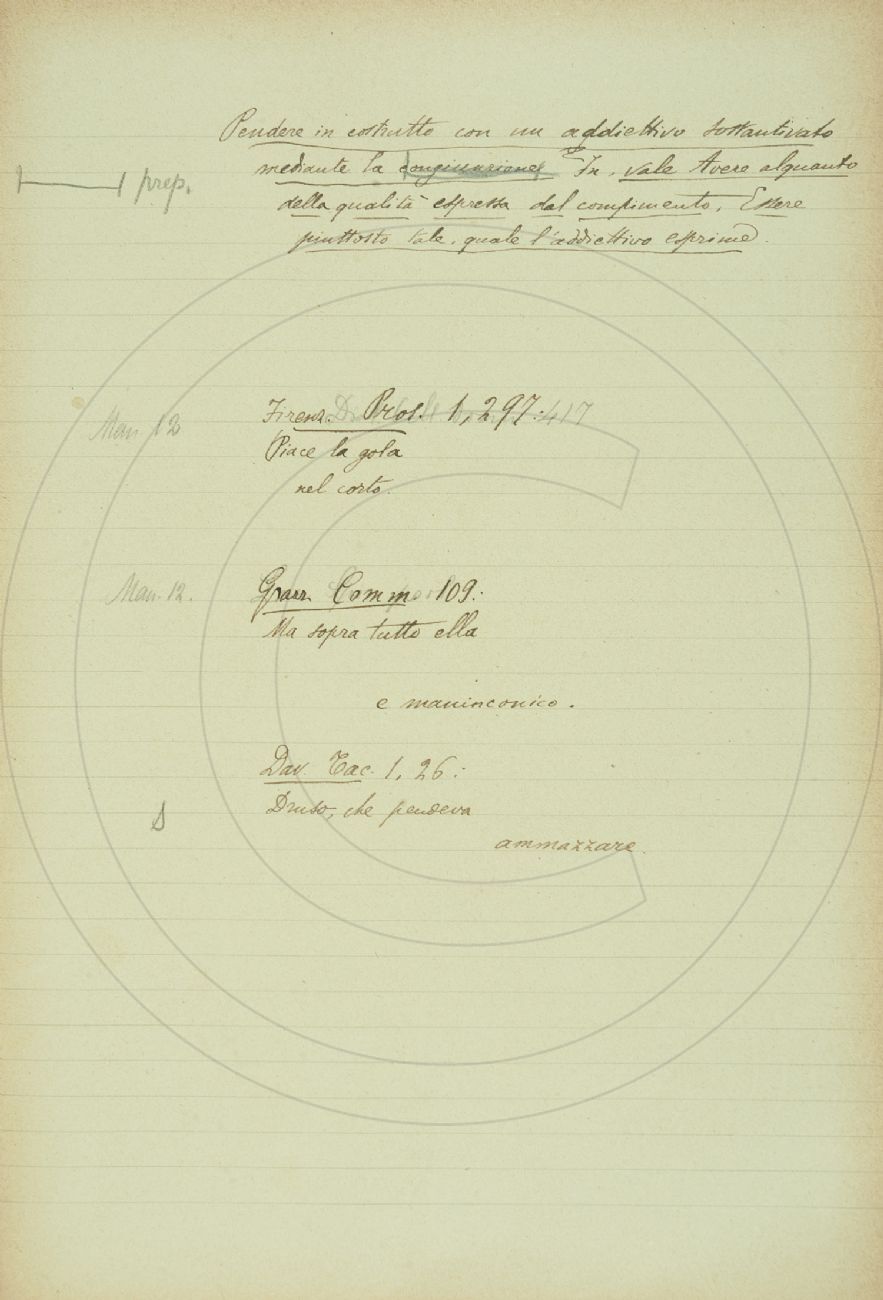 Pendere in costrutto con un addiettivo sostantivato
mediante la congiunzione In, vale Avere alquanto
prep.
della qualità espressa dal compimento, Essere
piuttosto tale, quale l'addiettivo esprime.
Firenz. Pros. 1, 297: 417
Man. 12
Piace la gola
nel corto.
Man. 12.
Guarr. Comm 109:
Ma sopra tutto ella
e maninconico.
Dav. Tac. 1, 26:
Druso, che pendeva
ammazzare.